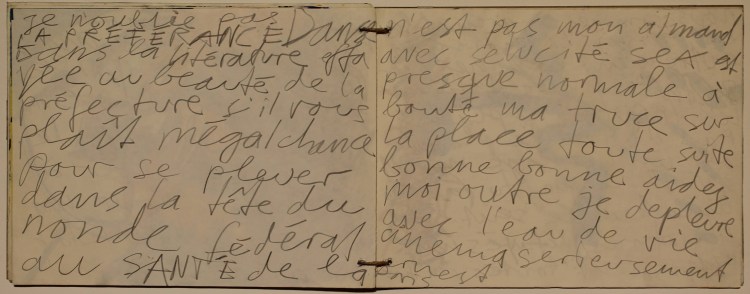 je n'oublie pas
LA PRÉFÉRANCE Dans
dans la litérature
vée au beauté de la
préfecture s'il vous
plait mégalchance
pour se pleuer
dans la tête du
nonde fédéral
au SANTÉ de la
n'est pas mon almand
avec selucité SEX est
presque normale à
bouté ma truce sur
la place toute suite
bonne bonne aidez
moi outre je depleure
avec l'eau de vie
cinema serieusement